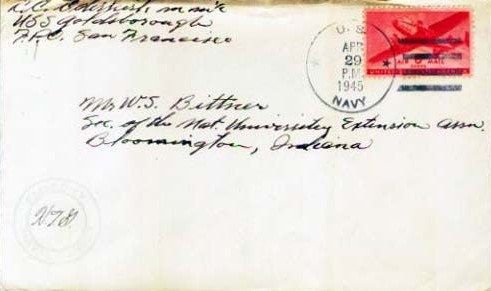 USS Goldsborough
F.P.O. San Francisco
U.S.
APR
29
P.M.
1945
NAVY
AIR MAIL
UNITED STATES
Mr W.S. Bittner
Sec. of the Nat. University Extension assn.
Bloomington, Indiana